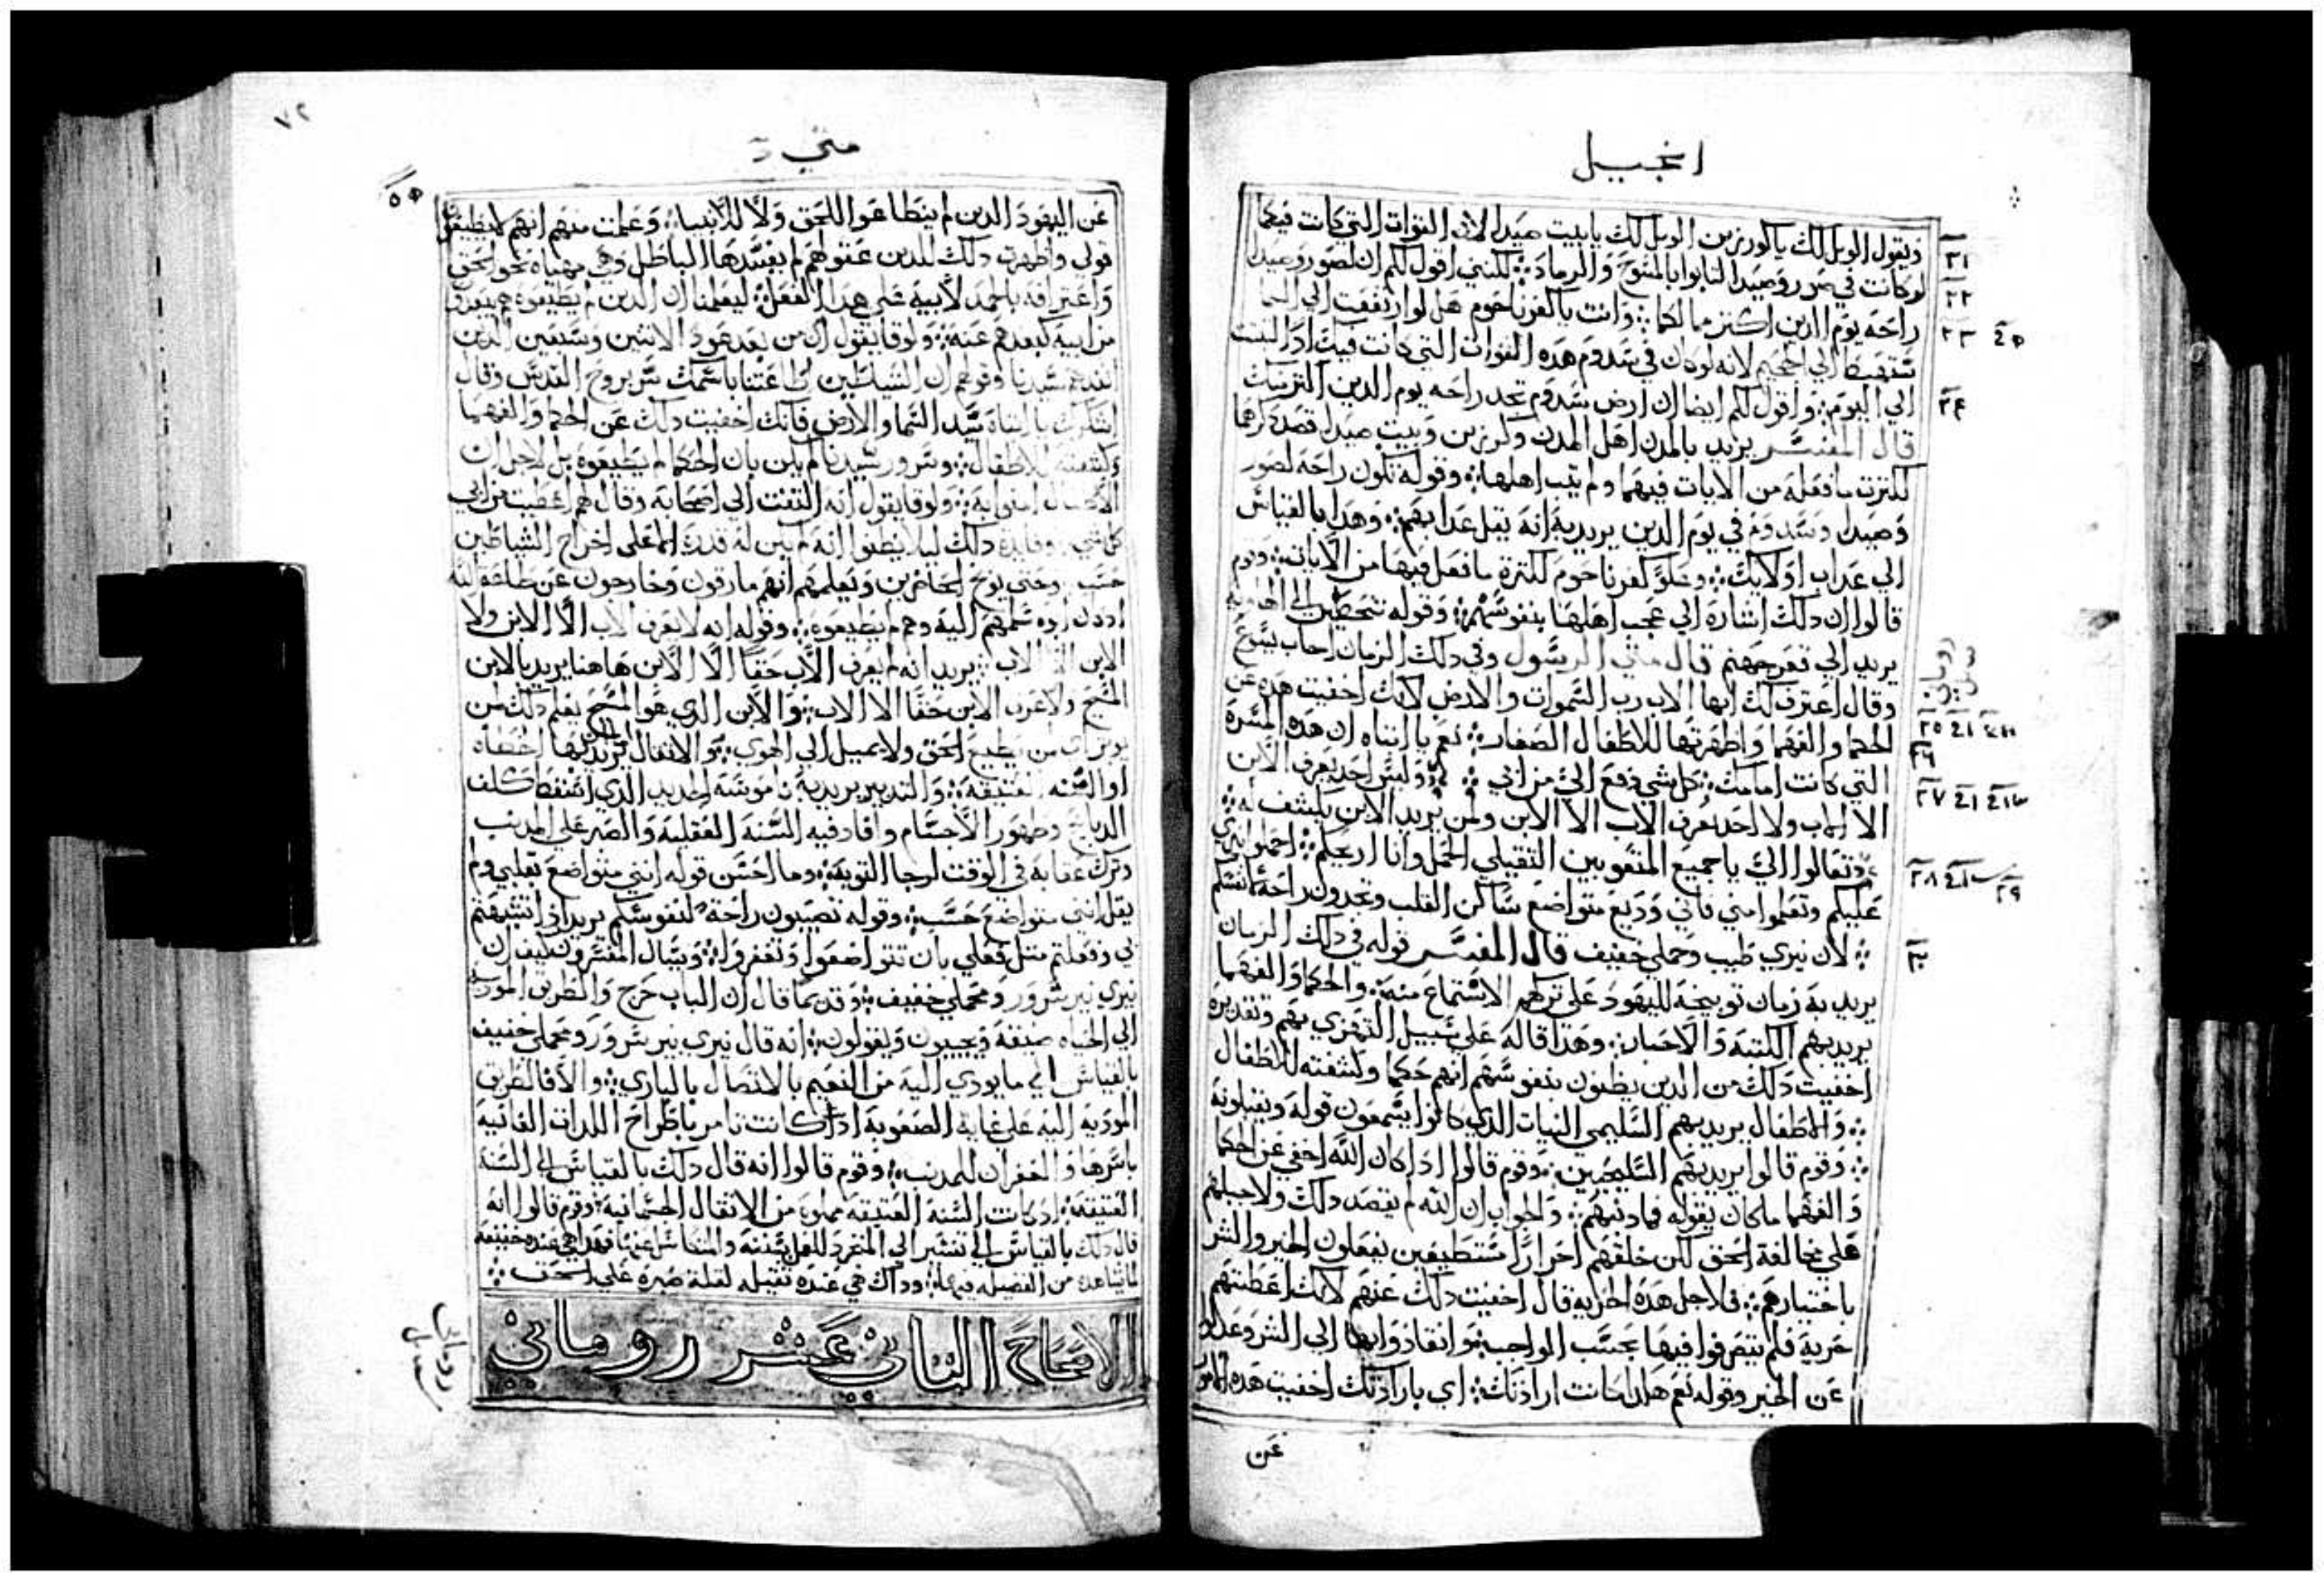 انجيل
ويقول الويل لك ياكورزين الويل لك يابيت صيدا لان القوات التي كانت فيكما
لوكانت في صور وصيدا لتابوا بالمسوح والرماد لكنني اقول لكم ان لصور وصيدا
راحه يوم الدين اكتر مما لكما وانت ياكفرناحوم هل لو ارتفعت الي السما
ستهبط الي الجحيم لانه لوكان في سدوم هذه القوات التي كانت فيك اذا لبثت
الي اليوم واقول لكم ايضا ان ارض سدوم تجد راحه يوم الدين اكتر منك
قال المفسر يريد بالمدن اهل المدن وكورزين وبيت صيدا قصد ذكرهما
لكثرت مافعله من الايات فيهما ولم يتب اهلها وقوله تكون راحة لصور
وصيدا وسدوم في يوم الدين يريد به انه يقل عذابهم وهذا بالقياس
الي عذاب اوليك وعلو كفرناحوم لكترة مافعل فيها من الايات وقوم
قالوا ان دلك اشاره الي عجب اهلها بنفوسهم وقوله تنحطين الي الهاويه
يريد الي قعر جهنم قال متي الرسول وفي دلك الزمان اجاب يسوع
وقال اعترف لك ايها الاب رب السموات والارض لانك اخفيت هذه عن
الحكما والفهما واظهرتها للاطفال الصغار نعم يا ابتاه ان هذه المسرة
التي كانت امامك كل شي دفع الي من ابي وليس احد يعرف الابن
الا الاب ولا احد يعرف الاب الا الابن ولمن يريد الابن يكشف له
وتعالوا الي ياجميع المتعوبين الثقيلي الحمل وانا اريحكم احملوا نيري
عليكم وتعلموا مني فاني وديع متواضع ساكن القلب وتجدون راحة لانفسكم
لان نيري طيب وحملي خفيف قال المفسر قوله في دلك الزمان
يريد به زمان توبيخه لليهود علي تركهم الاستماع منه والحكما والفهما
يريد بهم الكتبة والاحبار وهذا قاله علي سبيل التهزي بهم وتقديره
اخفيت دلك من الدين يظنون بنفوسهم انهم حكما وكشفته للاطفال
والاطفال يريد بهم السليمي النيات الذي كانوا يسمعون قوله ويقبلونه
وقوم قالوا يريد بهم السليحيين وقوم قالوا اذا كان الله اخفي عن الحكما
والفهما ماكان يقوله فما ذنبهم والجواب ان الله لم يقصد دلك ولاجبلهم
علي مخالفة الحق لكن خلقهم احرارا مستطيعين يفعلون الخير والشر
باختيارهم فلاجل هذه الحريه قال اخفيت دلك عنهم لانك اعطيتهم
حرية فلم يتصرفوا فيها بحسب الواجب وانقادوا بها الي الشر وعدلوا
عن الخير وقوله نعم هاكدا كانت ارادتك اي بارادتك اخفيت هذه الامور
عن
٢١
٢٢
٢٣
٢٤
٢٥
٢٦
٢٧
٢٨
٢٩
٣٠
متي
٧٢
عن اليهود الدين لم ينطاعوا للحق ولا للانبيا وعلمت منهم انهم لايطيعون
قولي واظهرت دلك للدين عقولهم لم يفسدها الباطل وهي مهياه نحو الحق
واعترافه بالحمد لابيه علي هدا الفعل ليعلمنا ان الدين لم يطيعوه هم بعدوا
من ابيه كبعدهم عنه ولوقا يقول ان من بعد عود الاتنين وسبعين الدين
انفدهم سيدنا وقولهم ان الشياطين اطاعتنا باسمك سر بروح القدس وقال
اشكرك يا ابتاه سيد السما والارض فانك اخفيت دلك عن الحكما والفهما
وكشفته للاطفال وسرور سيدنا لم يكن بان الحكما لم يطيعوه بل لاجل ان
الاطفال امنوا به ولوقا يقول انه التفت الي اصحابه وقال لهم اعطيت من ابي
كل شي وفايدة دلك ليلا يظنوا انه لم يكن له قدرة الا علي اخراج الشياطين
حسب وحتي يوبخ الحاضرين ويعلمهم انهم مارقون وخارجون عن طاعة الله
اد كان ابوه سلمهم اليه وهم لم يطيعوه وقوله انه لايعرف الاب الا الابن ولا
الابن الا الاب يريد انه لم يعرف الاب حقا الا الابن هاهنا يريد بالابن
المسيح ولاعرف الابن حقا الا الاب والابن الذي هو المسيح يعلم دلك لمن
يوثر ان من يطيع الحق ولايميل الي الهوي والاتقال يريد بها الخطاه
او السنه العتيقة والتدبير يريد به ناموسه الجديد الذي اسقط كلف
الدبايح وطهور الاجسام وافاد فيه السنة العقلية والصبر علي المدنب
وترك عقابه في الوقت لرجا التوبة وما احسن قوله انني متواضع بقلبي ولم
يقل انني متواضع حسب وقوله تصيبون راحة لنفوسكم يريد ادا تشبهتم
بي وفعلتم متل فعلي بان تتواضعوا وتغفروا ويسال المفسرون كيف ان
نيري نير سرور ومحملي خفيف وقديما قال ان الباب حرج والطريق الموديه
الي الحياه ضيقة ويجيبون ويقولون انه قال نيري نير سرور ومحملي خفيف
بالقياس الي مايودي اليه من النعيم بالاتصال بالباري والا فالطريق
الموديه اليه علي غاية الصعوبة اد كانت تامر باطراح اللدات الفانيه
باسرها والغفران للمدنب وقوم قالوا انه قال دلك بالقياس الي السنة
العتيقة اد كانت السنة العتيقة مملوة من الاتقال الجسمانية وقوم قالوا انه
قال دلك بالقياس
لما يشاهده من الفضيله فيها وداك هي عنده تقيله لقلة صبره علي الحق
الاصحاح التاني عشر روماني